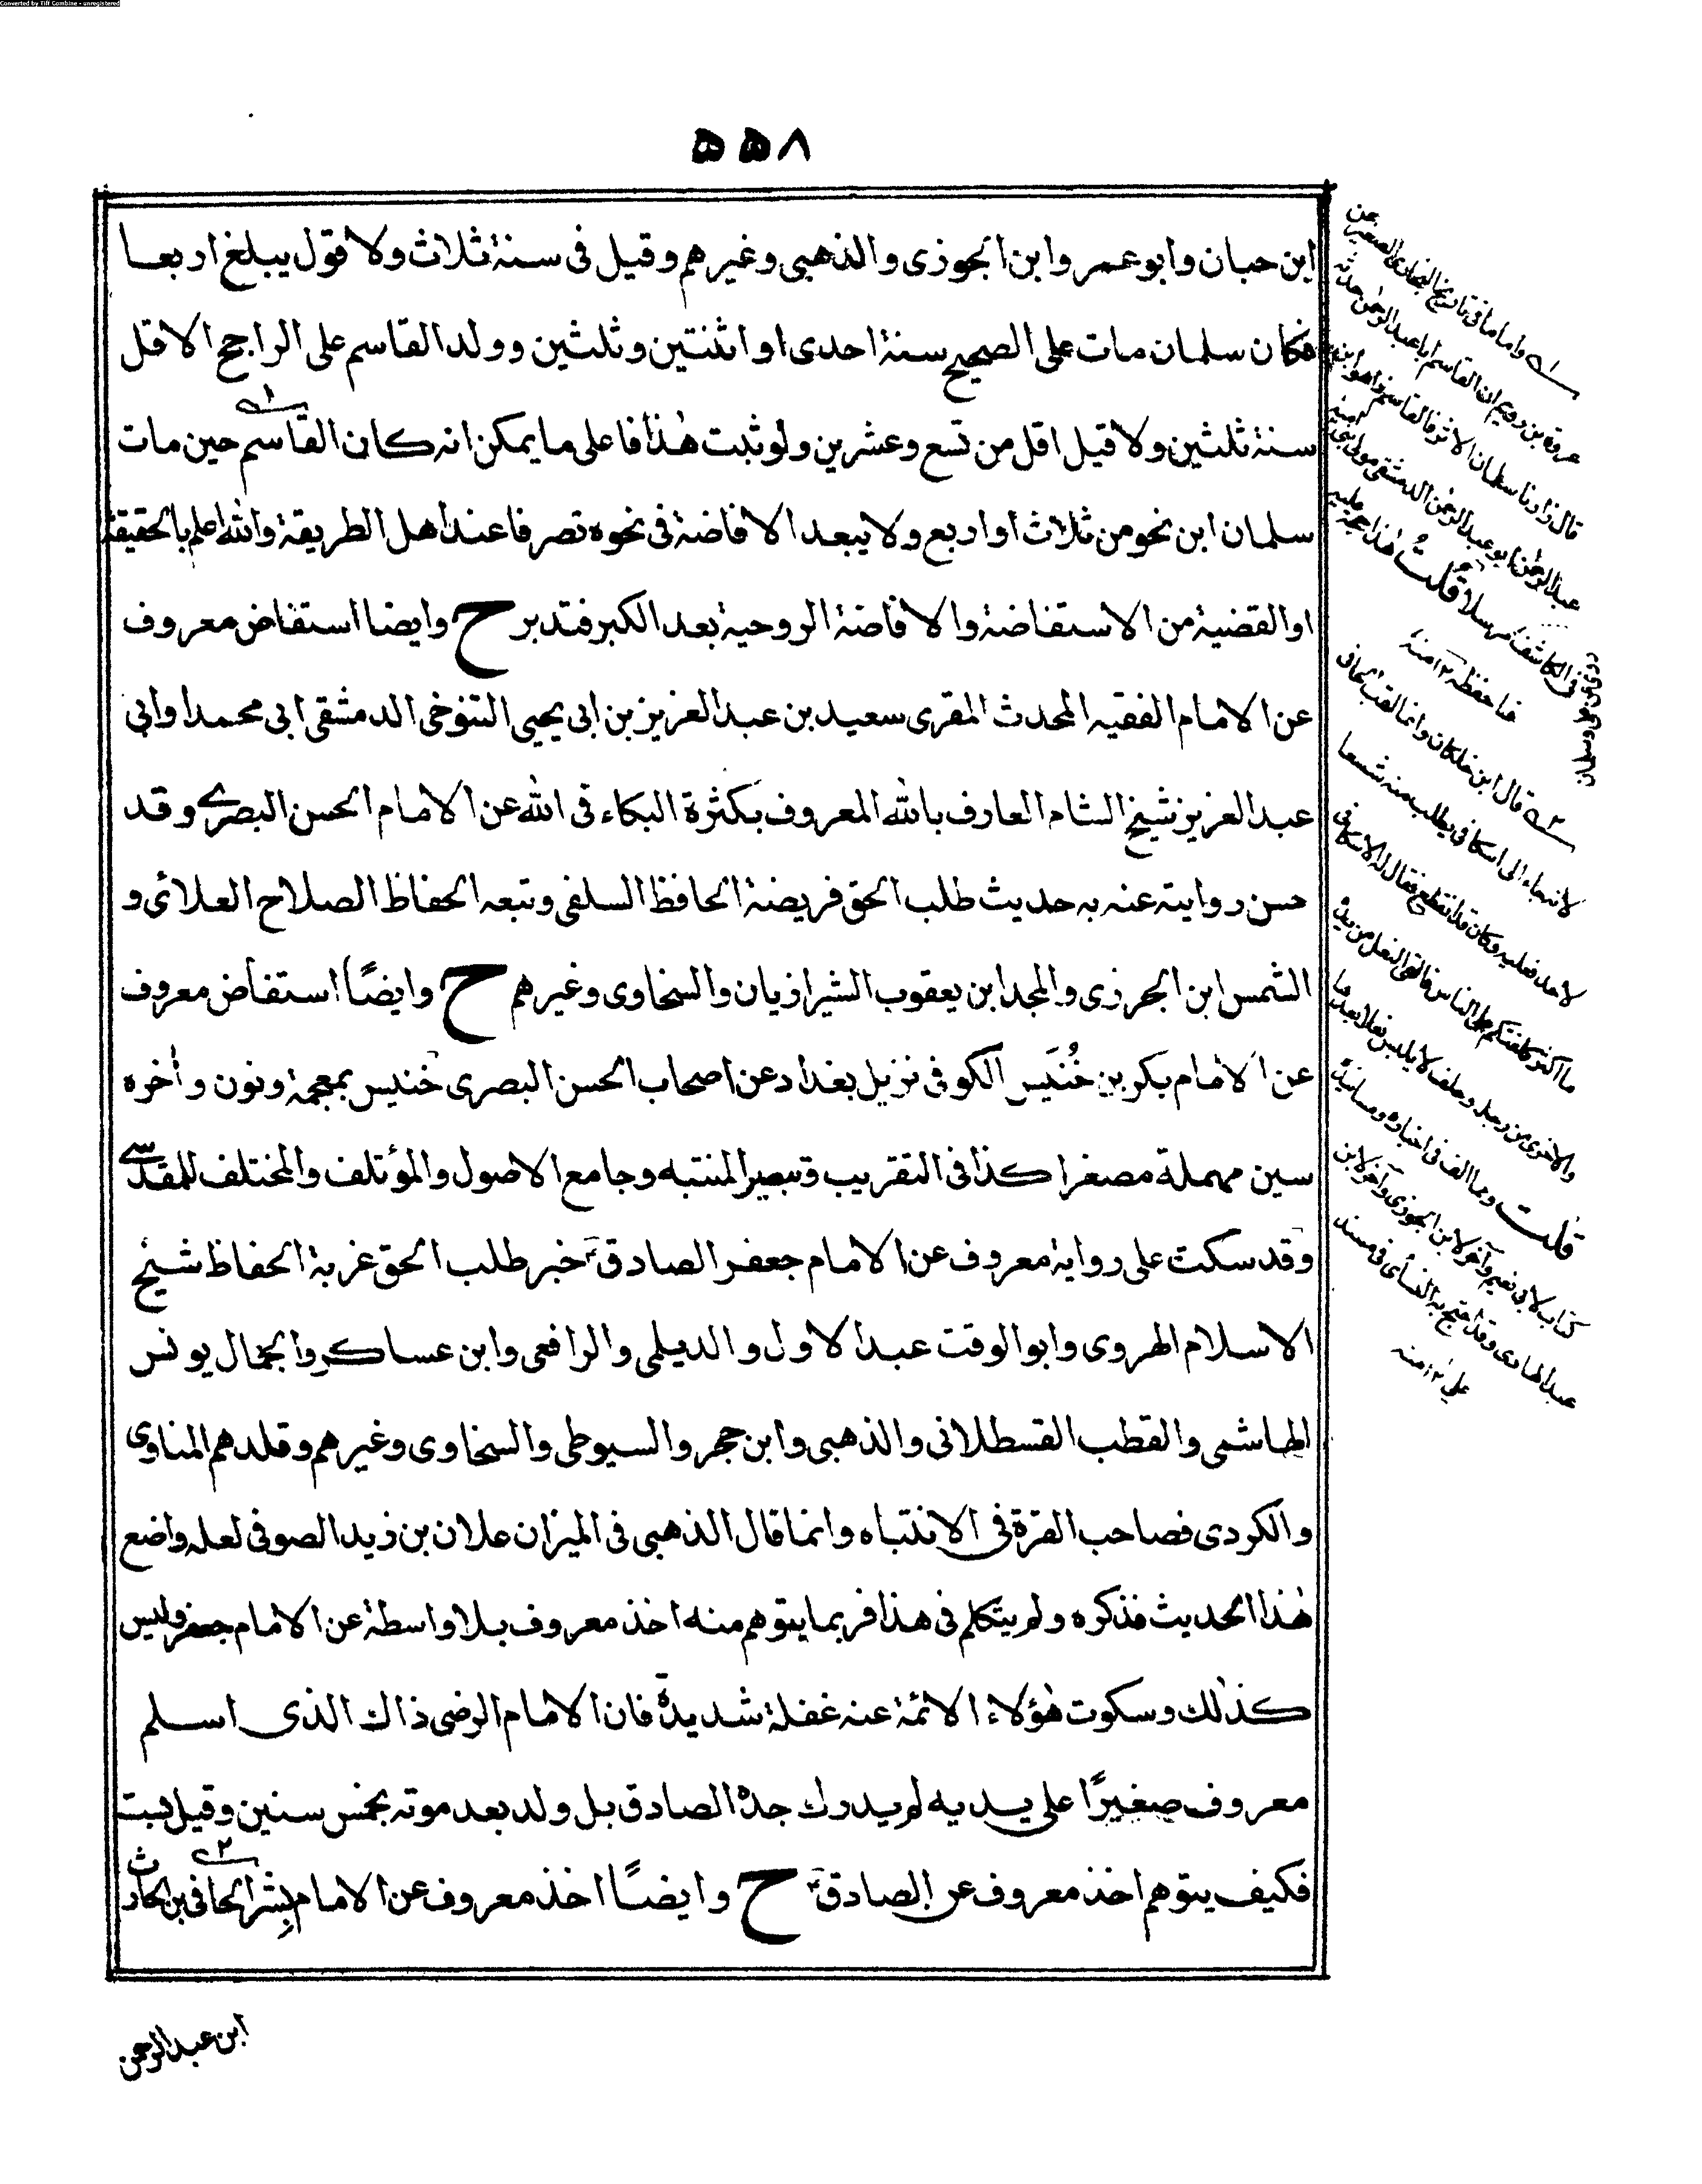 Converted by Tiff Combine - unregistered
۵۵۸
ابن حبان وابو عمر وابن الجوزی والذهبی وغیرهم وقیل فی سنة ثلاث ولا قول یبلغ اربعا
فکان سلمان مات علی الصحیح سنة احدی او اثنتین وثلثین وولد القاسم علی الراجح الاقل
سنة ثلثین ولا قیل اقل من تسع وعشرین ولو ثبت هٰذا فاعلی ما یمکن انه کان القاسم۱ حین مات
سلمان ابن نحو من ثلاث او اربع ولا یبعد الافاضة فی نحوه تصرفا عند اهل الطریقة والله اعلم بالحقیقة
او القضیة من الاستفاضة والافاضة الروحیة بعد الکبر فتدبر ح وایضا استفاض معروف
عن الامام الفقیه المحدث المقری سعید بن عبد العزیز بن ابی یحیی التنوخی الدمشقی ابی محمد او ابی
عبد العزیز شیخ الشام العارف بالله المعروف بکثرة البکاء فی الله عن الامام الحسن البصری وقد
حسن روایته عنه به حدیث طلب الحق فریضة الحافظ السلفی وتبعه الحفاظ الصلاح العلائی و
الشمس ابن الجرزی والمجد ابن یعقوب الشیرازیان والسخاوی وغیرهم ح وایضًا استفاض معروف
عن الامام بکر بن خُنَیس الکوفی نزیل بغداد عن اصحاب الحسن البصری خنیس بمعجمة ونون واٰخره
سین مهملة مصغرا کذا فی التقریب وتبصیر المنتبه وجامع الاصول والمؤتلف والمختلف للمقدسی
وقد سکت علی روایة معروف عن الامام جعفر الصادق خبر طلب الحق غربة الحفاظ شیخ
الاسلام الهروی وابو الوقت عبد الاول والدیلمی والرافعی وابن عساکر والجمال یونس
الهاشمی والقطب القسطلانی والذهبی وابن حجر والسیوطی والسخاوی وغیرهم وقلدهم المناوی
والکردی فصاحب القرة فی الانتباه وانما قال الذهبی فی المیزان علان بن زید الصوفی لعله واضع
هٰذا الحدیث فذکره ولم یتکلم فی هذا فربما یتوهم منه اخذ معروف بلا واسطة عن الامام جعفر ولیس
کذلك وسکوت هٰؤلاء الائمة عنه غفلة شدیدة فان الامام الرضی ذاك الذی اسلم
معروف صغیرًا علی یدیه لم یدرك جده الصادق بل ولد بعد موته بخمس سنین وقیل بست
فکیف یتوهم اخذ معروف عن الصادق ح وایضًا اخذ معروف عن الامام بِشر الحافی۲ بن الحارث
ابن عبد الرحمن
۱ واما ما فی تاریخ البخاری الصغیر عن
عروة بن رویم ان القاسم ابا عبد الرحمن حدثه
قال زارنا سلمان الاثر فالقاسم هو ابن
عبد الرحمن ابو عبد الرحمن الدمشقی مولی
فی الکاشف مرسلا قُلتُ هٰذا
فاحفظه ۱۲ منه
۲ قال ابن خلکان وانما لقب بالحافی
لانه جاء الی اسکافی یطلب منه شسعا
لاحد نعلیه وکان قد انقطع فقال له الاسکافی
ما اکثر کلفتکم علی الناس فالقی النعل من یده
والاخری من رجله وحلف لا یلبس نعلا بعدها
قلت ومما الف فی اخباره ومسانیده
کتاب لابی نعیم وآخر لابن الجوزی وآخر لابن
عبد الهادی وقد احتج به النسائی فی مسند
علی ۱۲ منه